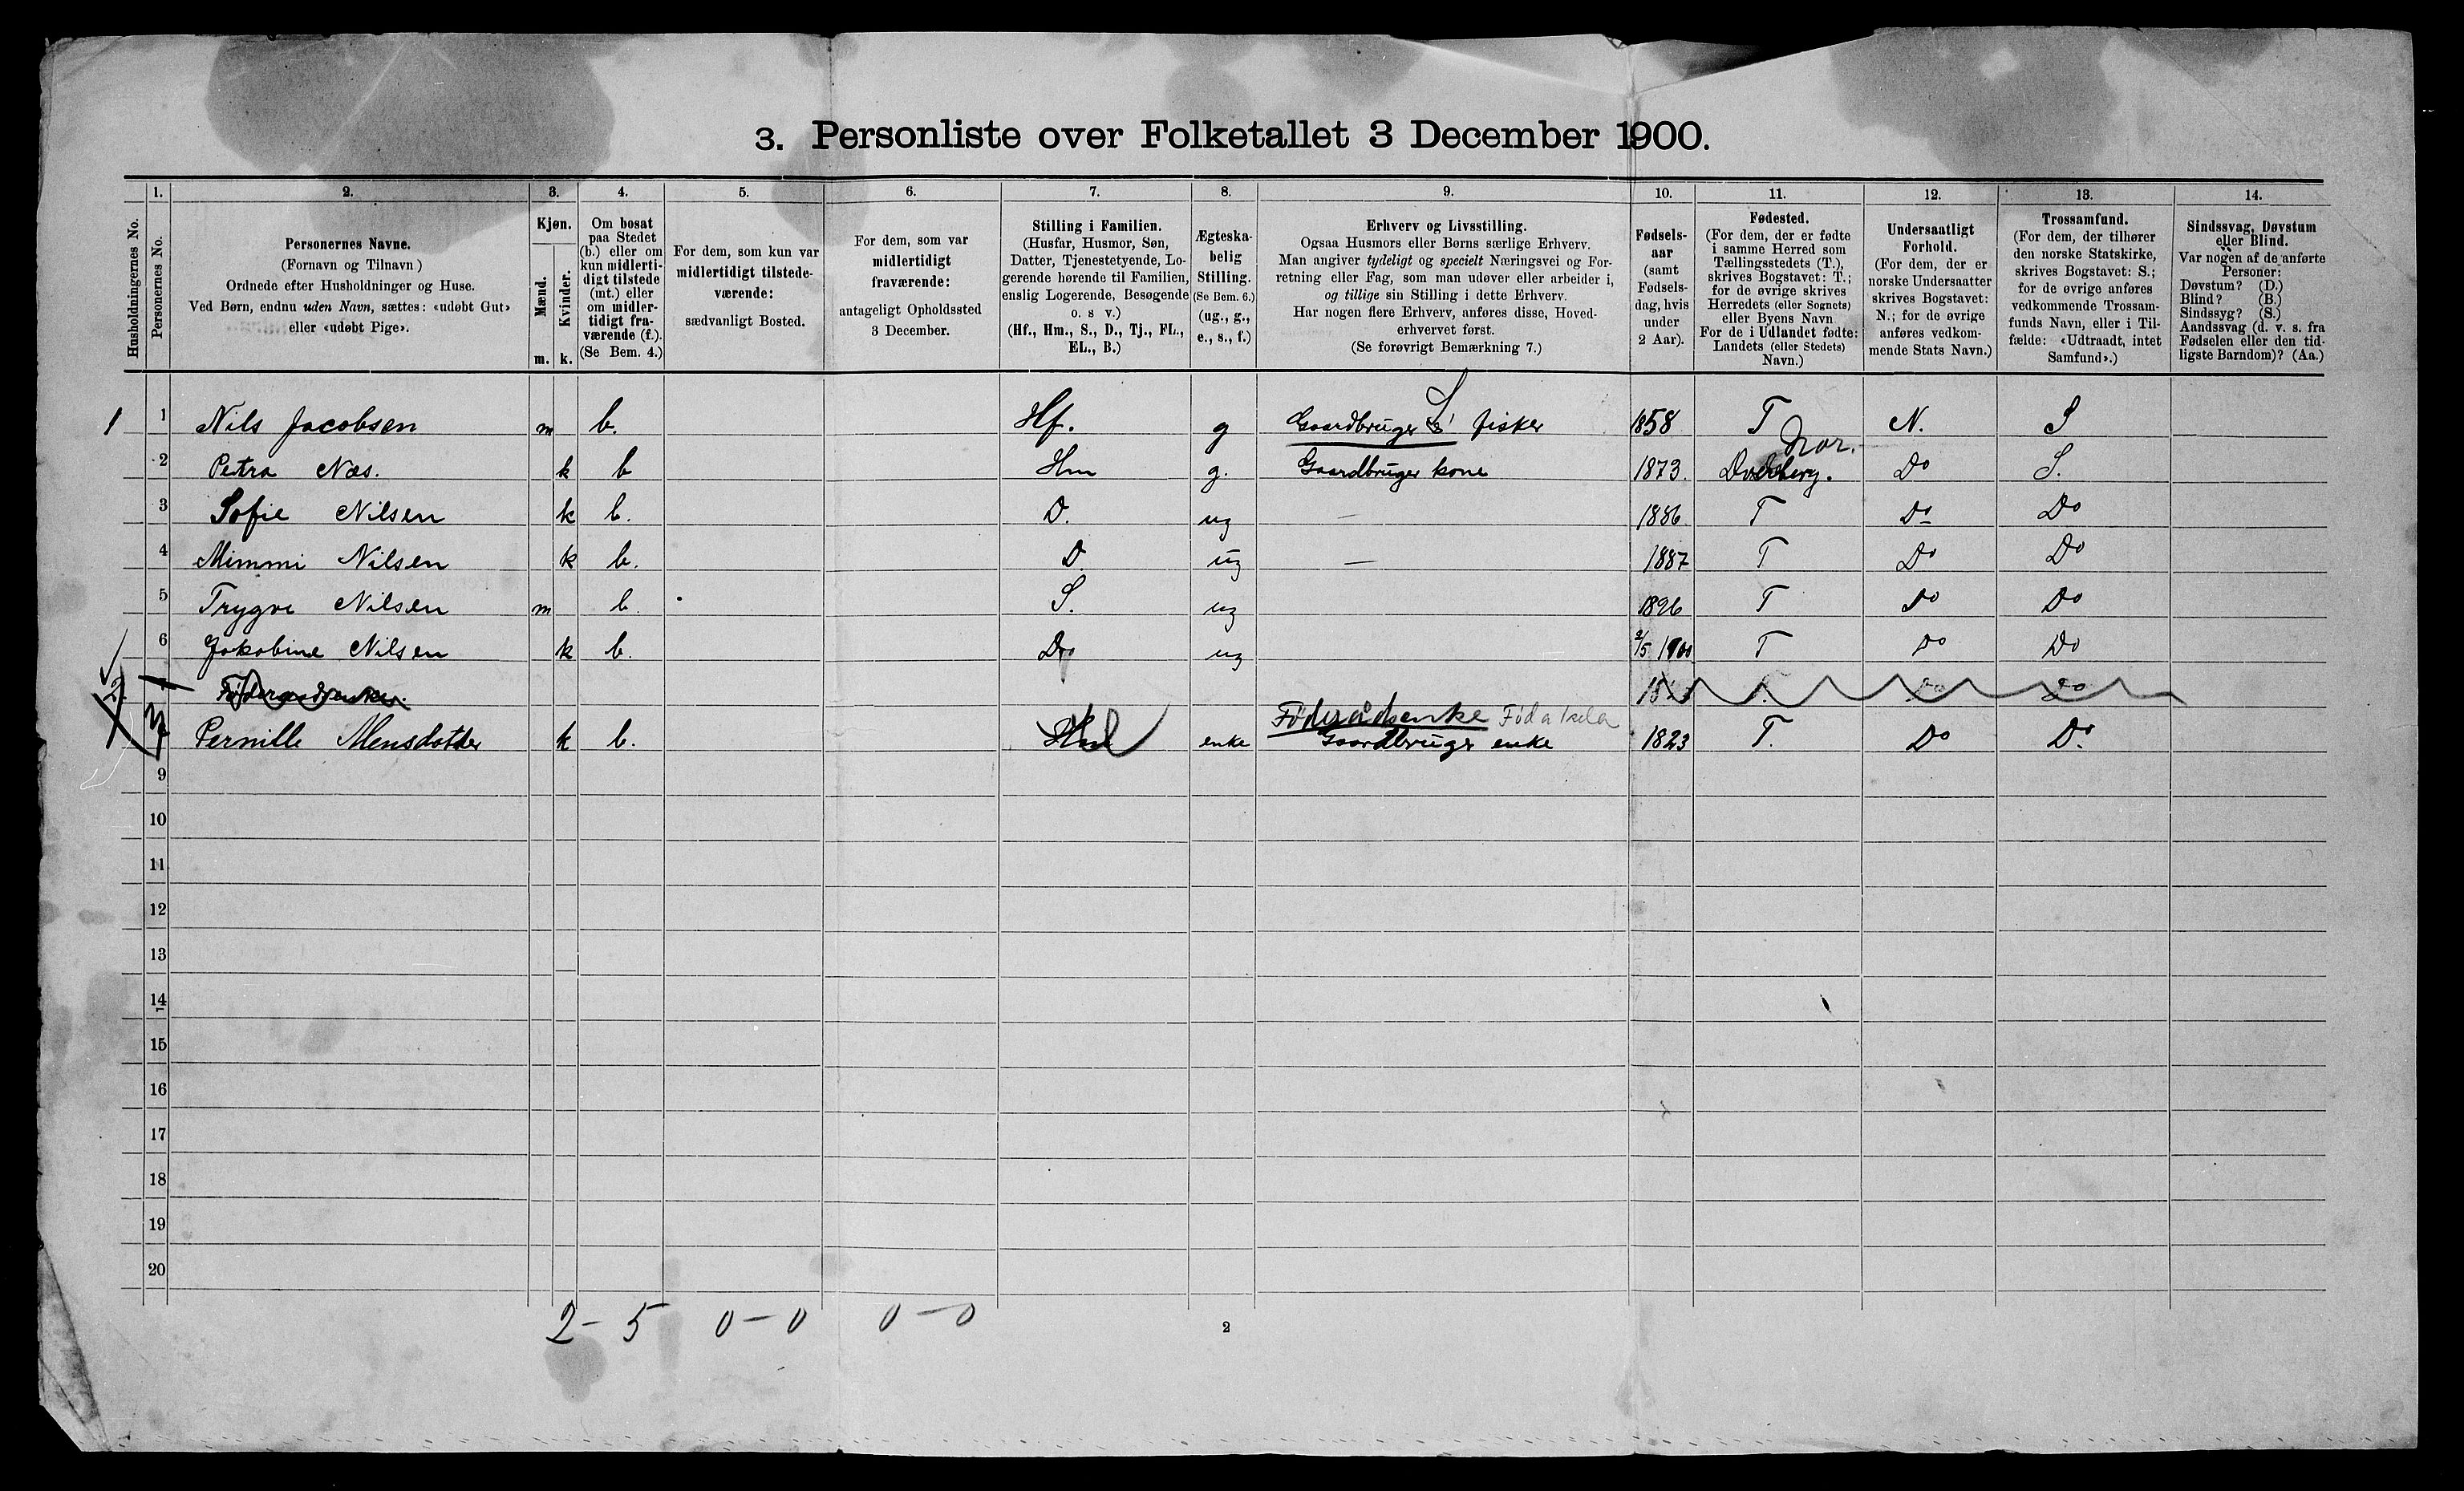 3. Personliste over Folketallet 3 December 1900.
1. 2. 3. 4. 5. 6. 7. 8. 9. 10. 11. 12. 13. 14.
Husholdningernes No.
Personernes No.
Personernes Navne.
(Fornavn og Tilnavn)
Ordnede efter Husholdninger og Huse.
Ved Børn, endnu uden Navn, sættes: «udøbt Gut»
eller «udøbt Pige».
Kjøn.
Mænd.
Kvinder.
m. k.
Om bosat
paa Stedet
(b.) eller om
kun midlerti-
digt tilstede
(mt.) eller
om midler-
tidigt fra-
værende (f.).
(Se Bem. 4.)
For dem, som kun var
midlertidigt tilstede-
værende:
sædvanligt Bosted.
For dem, som var
midlertidigt
fraværende:
antageligt Opholdssted
3 December.
Stilling i Familien.
(Husfar, Husmor, Søn,
Datter, Tjenestetyende, Lo-
gerende hørende til Familien,
enslig Logerende, Besøgende
o. s v.)
(Hf., Hm., S., D., Tj., FL.,
EL., B.)
Ægteska-
belig
Stilling.
(Se Bem. 6.)
(ug., g.,
e., s., f.)
Erhverv og Livsstilling.
Ogsaa Husmors eller Børns særlige Erhverv.
Man angiver tydeligt og specielt Næringsvei og For-
retning eller Fag, som man udøver eller arbeider i,
og tillige sin Stilling i dette Erhverv.
Har nogen flere Erhverv, anføres disse, Hoved-
erhvervet først.
(Se forøvrigt Bemærkning 7.)
Fødsels-
aar
(samt
Fødsels-
dag, hvis
under
2 Aar).
Fødested.
(For dem, der er fødte
i samme Herred som
Tællingsstedets (T.),
skrives Bogstavet: T.;
for de øvrige skrives
Herredets (eller Sognets)
eller Byens Navn
For de i Udlandet fødte:
Landets (eller Stedets)
Navn.)
Undersaatligt
Forhold.
(For dem, der er
norske Undersaatter
skrives Bogstavet:
N.; for de øvrige
anføres vedkom-
mende Stats Navn.)
Trossamfund.
(For dem, der tilhører
den norske Statskirke,
skrives Bogstavet: S.;
for de øvrige anføres
vedkommende Trossam-
funds Navn, eller i Til-
fælde: «Udtraadt, intet
Samfund».)
Sindssvag, Døvstum
eller Blind.
Var nogen af de anførte
Personer:
Døvstum? (D.)
Blind? (B.)
Sindssyg? (S.)
Aandssvag (d. v. s. fra
Fødselen eller den tid-
ligste Barndom)? (Aa.)
1 1 Nils Jacobsen m b. Hf. g Gaardbruger fisker 1858 T N. S
Nor.
2 Petra Næs. k b Hm g. Gaardbruger kone 1873. Dverberg. Do S.
3 Sofie Nilsen k b. D. ug — 1886 T Do Do
4 Mimmi Nilsen k b. D. ug — 1887 T Do Do
5 Trygve Nilsen m b. S. ug 1896 T Do Do
6 Jakobine Nilsen k b. D ug 2/5 1900 T Do Do
Føderaadsenke. Do Do
Føderådsenke
Pernille Mensdatter k b. enke Gaardbruger enke 1823 T. Do Do
9
10
11
12
13
14
15
16
17
18
19
20
2 - 5 0 - 0 0 - 0
2